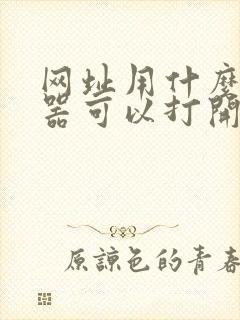 网址用什麽
器可以打開
原諒色的青春